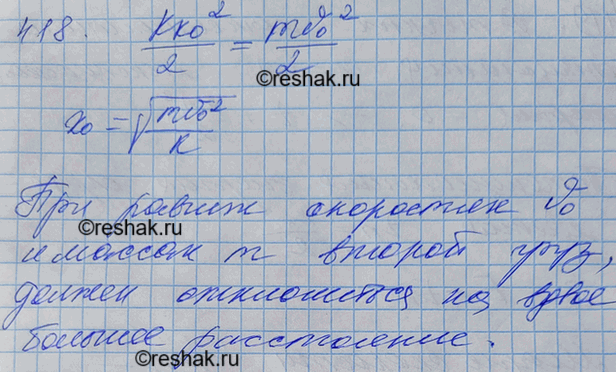 418. kx₀²/2 = mv₀²/2
reshak.ru
x₀ = √(mv₀²/k)
При равных скоростях v₀
reshak.ru
и массах m второй груз,
должен отклониться на вдвое
большее расстояние.
reshak.ru